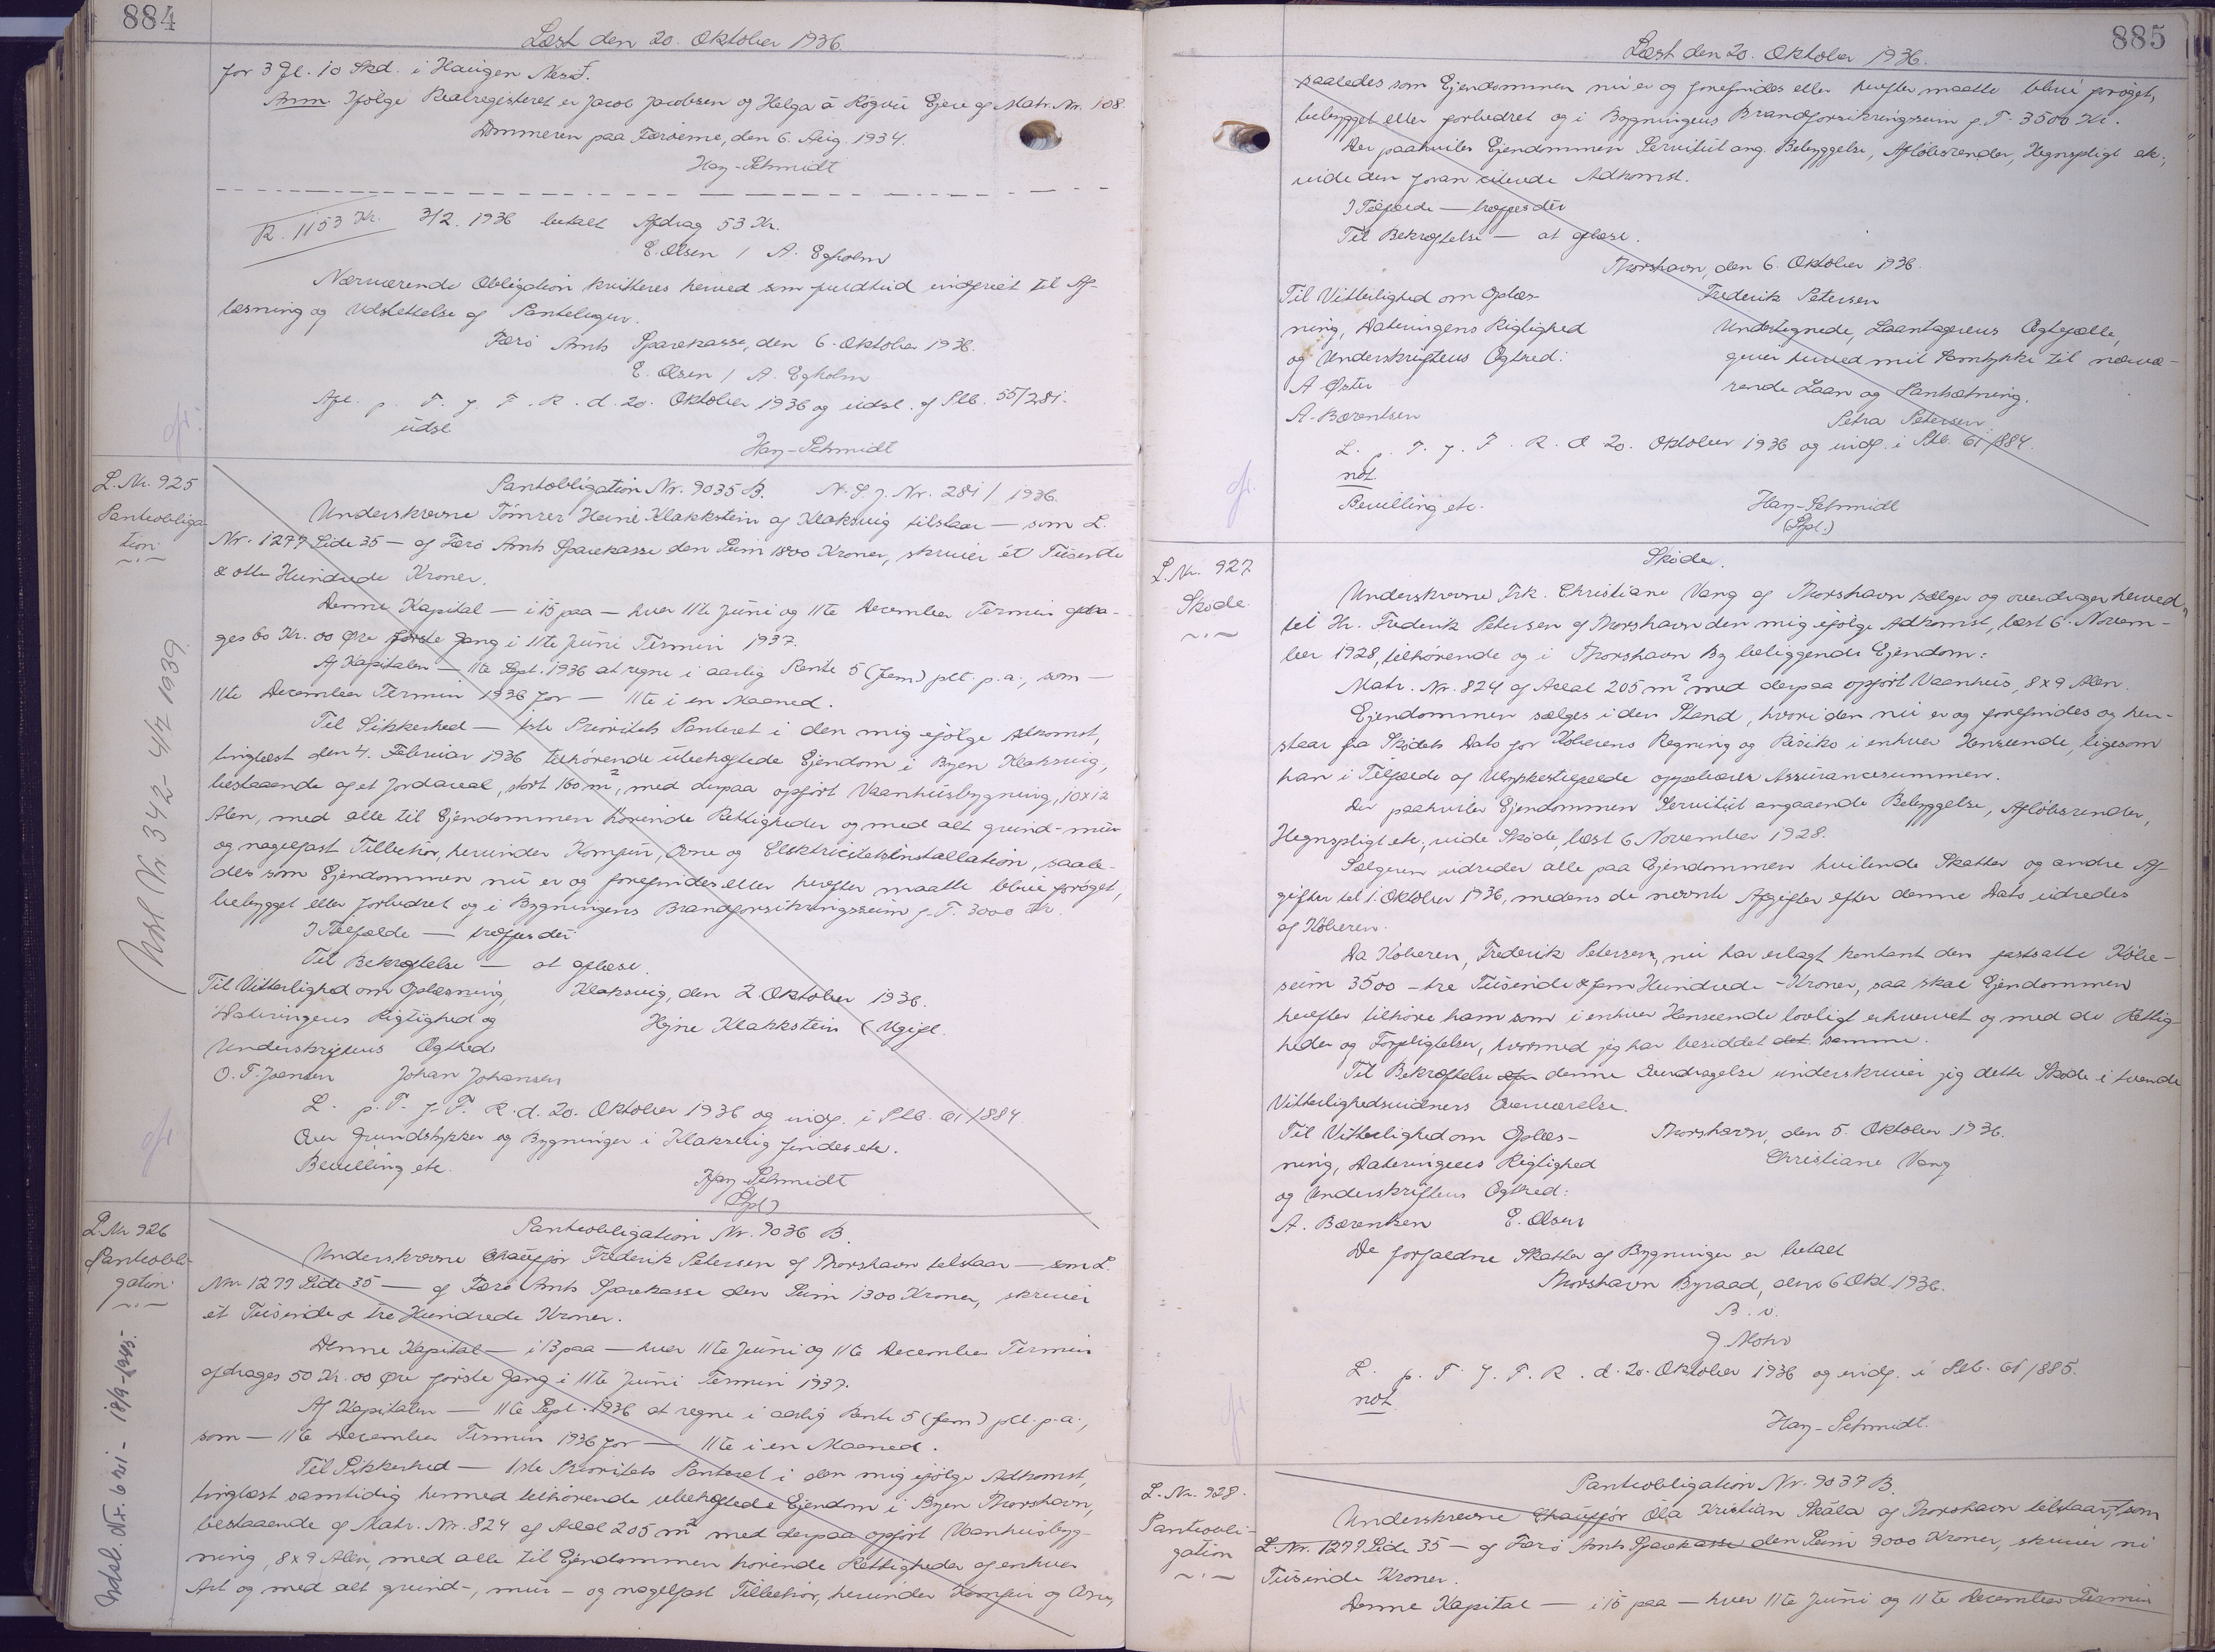 884
Læst den 20. Oktober 1936.
for 3 Gl. 10 Skd. i Haugen Nesi.
Anm Ifölge Realregisteret er Jacob Jacobsen og Helga á Rógvu Ejere af Matr. Nr. 108.
Dommeren paa Færöerne, den 6. Aug. 1934.
Hay-Schmidt
R. 1153 Kr. 3/2. 1936 betalt Afdrag 53 Kr.
E. Olsen / A. Egholm
Nærværende Obligation kvitteres herved som fuldtud indfriet til Af-
læsning og Udslettelse af Pantebogen.
Færö Amts Sparekasse, den 6. Oktober 1936.
E. Olsen / A. Egholm
Afl. p. T. f. F. R. d. 20. Oktober 1936 og udsl. af Ptb. 55/281.
udsl
Hay-Schmidt
L. Nr. 925
Panteobliga-
tion
Udsl Nr 342 - 4/7 1939.
Panteobligation Nr. 9035 B. N. S. J. Nr. 281 / 1936.
Underskrevne Tömrer Heine Klakkstein af Klaksvig tilstaar — som L.
Nr. 1277 Side 35 — af Færö Amts Sparekasse den Sum 1800 Kroner, skriver ét Tusende
& otte Hundrede Kroner.
Denne Kapital — i 15 paa — hver 11te Juni og 11te December Termin afdra-
ges 60 Kr. 00 Øre förste Gang i 11te Juni Termin 1937.
Af Kapitalen — 11te Sept. 1936 at regne i aarlig Rente 5 (fem) pCt. p. a., som —
11te December Termin 1936 for — 11te i en Maaned.
Til Sikkerhed — 1ste Prioritets Panteret i den mig ifölge Adkomst,
tinglæst den 4. Februar 1936 tilhörende ubehæftede Ejendom i Byen Klaksvig,
bestaaende af et Jordareal, stort 160 m², med derpaa opfört Vaanhusbygning, 10x12
Alen, med alle til Ejendommen hörende Rettigheder og med alt grund- mur
og nagelfast Tilbehör, herunder Komfur, Ovne og Elektricitetsinstallation, saale-
des som Ejendommen nu er og forefindes eller herefter maatte blive foröget,
bebygget eller forbedret og i Bygningens Brandforsikringssum p. T. 3000 Kr.
I Tilfælde — træffes dér
Til Bekræftelse — at aflæse.
Til Vitterlighed om Oplæsning, Klaksvig, den 2 Oktober 1936.
Dateringens Rigtighed og Hejne Klakkstein (Ugift.
Underskriftens Ægthed:
O. F. Joensen Johan Johansen
L. p. T. f. F. R. d. 20. Oktober 1936 og indf. i Ptb. 61/884.
Over Grundstykker og Bygninger i Klaksvig findes etc.
Bevilling etc.
Hay-Schmidt
(Spl)
L. Nr 926
Panteobli-
gation
Udsl. Nr. 621 - 18/9 - 1945.
Panteobligation Nr. 9036 B.
Underskrevne Chauffør Frederik Petersen af Thorshavn tilstaar — som L.
Nr. 1277 Side 35 — af Færö Amts Sparekasse den Sum 1300 Kroner, skriver
ét Tusende & tre Hundrede Kroner.
Denne Kapital — i 13 paa — hver 11te Juni og 11te December Termin
afdrages 50 Kr. 00 Øre förste Gang i 11te Juni Termin 1937.
Af Kapitalen — 11te Sept. 1936 at regne i aarlig Rente 5 (fem) pCt. p. a.,
som — 11te December Termin 1936 for — 11te i en Maaned.
Til Sikkerhed — 1ste Prioritets Panteret i den mig ifölge Adkomst,
tinglæst samtidig hermed tilhörende ubehæftede Ejendom i Byen Thorshavn,
bestaaende af Matr. Nr. 824 af Areal 205 m² med derpaa opfört Vaanhusbyg-
ning, 8x9 Alen, med alle til Ejendommen hörende Rettigheder af enhver
Art og med alt grund-, mur- og nagelfast Tilbehör, herunder Komfur og Ovne,
885
Læst den 20. Oktober 1936.
saaledes som Ejendommen nu er og forefindes eller herefter maatte blive foröget,
bebygget eller forbedret og i Bygningens Brandforsikringssum p. T. 3500 Kr.
Der paahviler Ejendommen Servitut ang. Bebyggelse, Aflöbsrender, Hegnspligt etc.,
vide den foran citerede Adkomst.
I Tilfælde — træffes dér
Til Bekræftelse — at aflæse.
Thorshavn, den 6. Oktober 1936.
Til Vitterlighed om Oplæs- Frederik Petersen
ning, Dateringens Rigtighed Undertegnede, Laantagerens Ægtefælle,
og Underskriftens Ægthed: giver herved mit Samtykke til nærvæ-
A Øster rende Laan og Pantsætning.
A. Bærentsen Petra Petersen
L. p. T. f. F. R. d 20. Oktober 1936 og indf. i Ptb. 61/884.
not.
Bevilling etc. Hay-Schmidt
(Spl.)
L. Nr. 927
Skøde
Skøde.
Underskrevne Frk. Christiane Vang af Thorshavn sælger og overdrager herved
til Hr. Frederik Petersen af Thorshavn den mig ifölge Adkomst, læst 6. Novem-
ber 1928, tilhörende og i Thorshavn By beliggende Ejendom:
Matr. Nr. 824 af Areal 205 m² med derpaa opfört Vaanhus, 8x9 Alen.
Ejendommen sælges i den Stand, hvori den nu er og forefindes og hen-
staar fra Skødets Dato for Köberens Regning og Risiko i enhver Henseende, ligesom
han i Tilfælde af Ulykkestilfælde oppebærer Assurancesummen.
Der paahviler Ejendommen Servitut angaaende Bebyggelse, Aflöbsrender,
Hegnspligt etc., vide Skøde, læst 6 November 1928.
Sælgeren udreder alle paa Ejendommen hvilende Skatter og andre Af-
gifter til 1. Oktober 1936, medens de nævnte Afgifter efter denne Dato udredes
af Köberen.
Da Köberen, Frederik Petersen, nu har erlagt kontant den fastsatte Köbe-
sum 3500 - tre Tusende & fem Hundrede - Kroner, saa skal Ejendommen
herefter tilhöre ham som i enhver Henseende lovligt erhvervet og med de Rettig-
heder og Forpligtelser, hvormed jeg har besiddet det samme.
Til Bekræftelse af denne Overdragelse underskriver jeg dette Skøde i tvende
Vitterlighedsvidners Overværelse.
Til Vitterlighed om Oplæs- Thorshavn, den 5. Oktober 1936.
ning, Dateringens Rigtighed Christiane Vang
og Underskriftens Ægthed:
A. Bærentsen E. Olsen
De forfaldne Skatter af Bygninger er betalt
Thorshavn Byraad, den 6 Okt. 1936.
B. v.
J Mohr
L. p. T. f. F. R. d. 20. Oktober 1936 og indf. i Ptb. 61/885.
not.
Hay-Schmidt.
L. Nr. 928.
Panteobli-
gation
Panteobligation Nr. 9037 B.
Underskrevne Chauffør Óla Kristian Skála af Thorshavn tilstaar, — som
L. Nr. 1277 Side 35 — af Færö Amts Sparekasse den Sum 9000 Kroner, skriver ni
Tusinde Kroner.
Denne Kapital — i 15 paa — hver 11te Juni og 11te December Termin